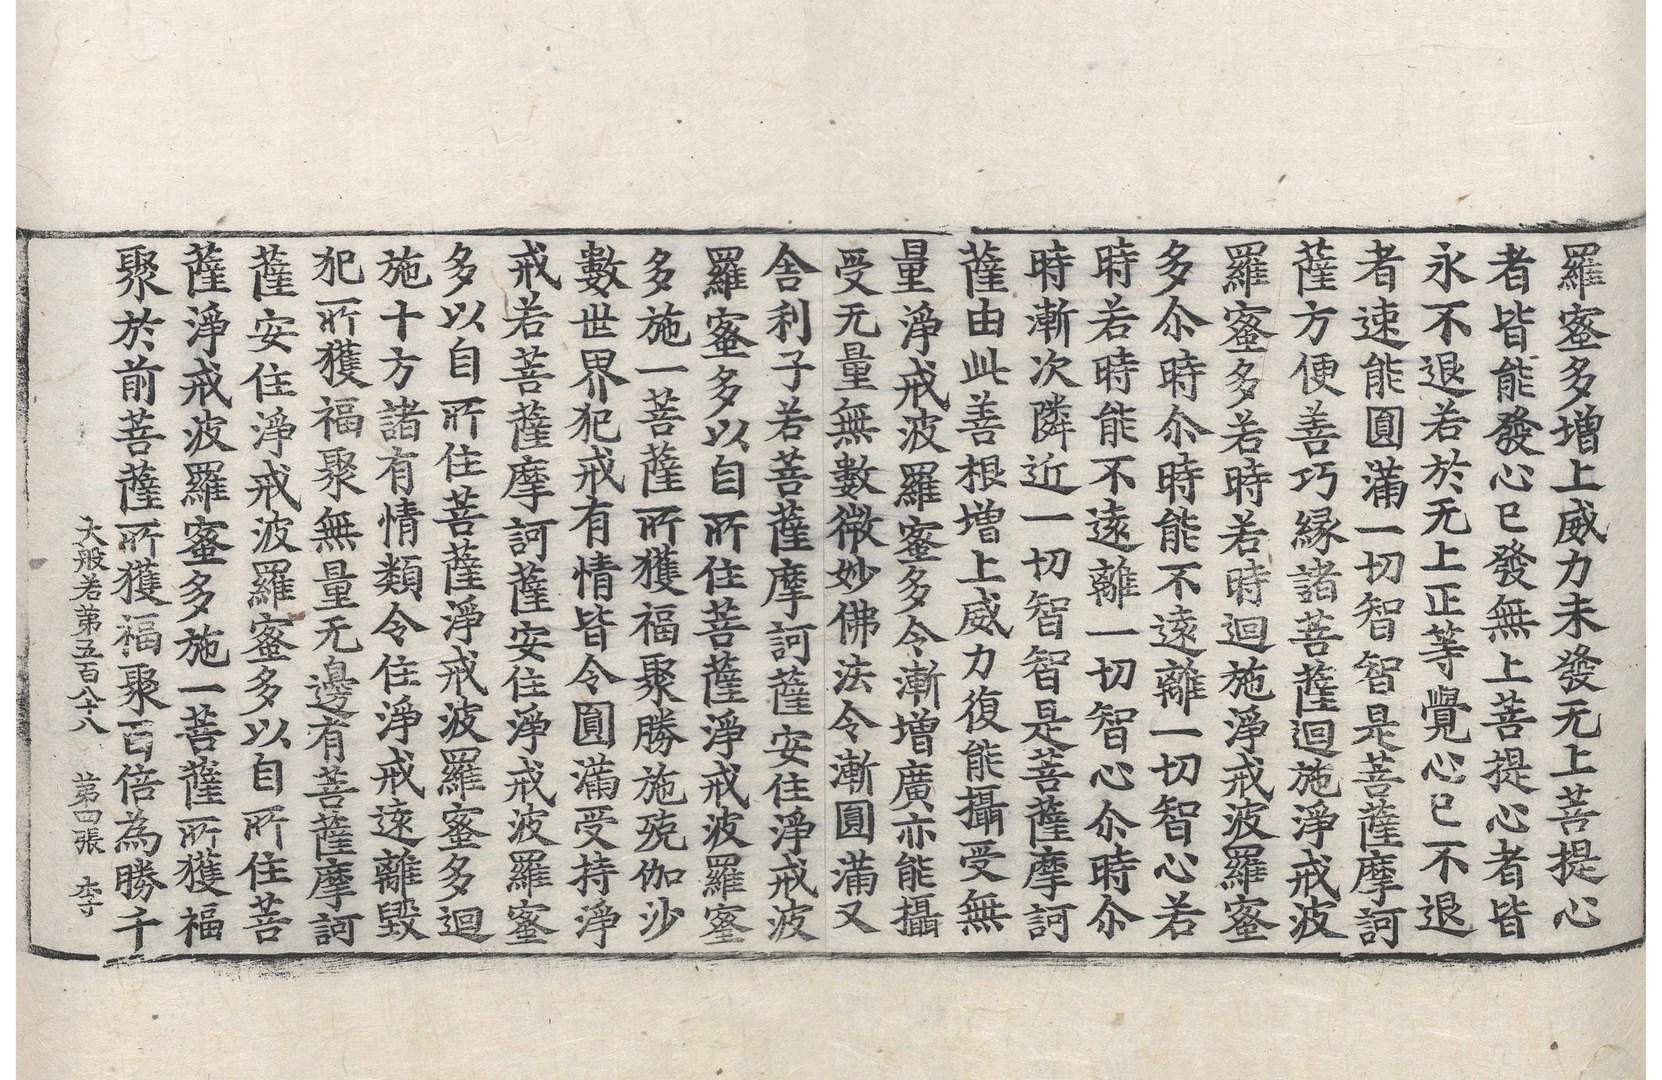 羅蜜多增上威力未發无上菩提心
者皆能發心已發無上菩提心者皆
永不退若於无上正等覺心已不退
者速能圓滿一切智智是菩薩摩訶
薩方便善巧緣諸菩薩迴施淨戒波
羅蜜多若時若時迴施淨戒波羅蜜
多尒時尒時能不遠離一切智心若
時若時能不遠離一切智心尒時尒
時漸次隣近一切智智是菩薩摩訶
薩由此善根增上威力復能攝受無
量淨戒波羅蜜多令漸增廣亦能攝
受无量無數微妙佛法令漸圓滿又
舍利子若菩薩摩訶薩安住淨戒波
羅蜜多以自所住菩薩淨戒波羅蜜
多施一菩薩所獲福聚勝施殑伽沙
數世界犯戒有情皆令圓滿受持淨
戒若菩薩摩訶薩安住淨戒波羅蜜
多以自所住菩薩淨戒波羅蜜多迴
施十方諸有情類令住淨戒遠離毀
犯所獲福聚無量无邊有菩薩摩訶
薩安住淨戒波羅蜜多以自所住菩
薩淨戒波羅蜜多施一菩薩所獲福
聚於前菩薩所獲福聚百倍為勝千
大般若第五百八十八 第四張 李